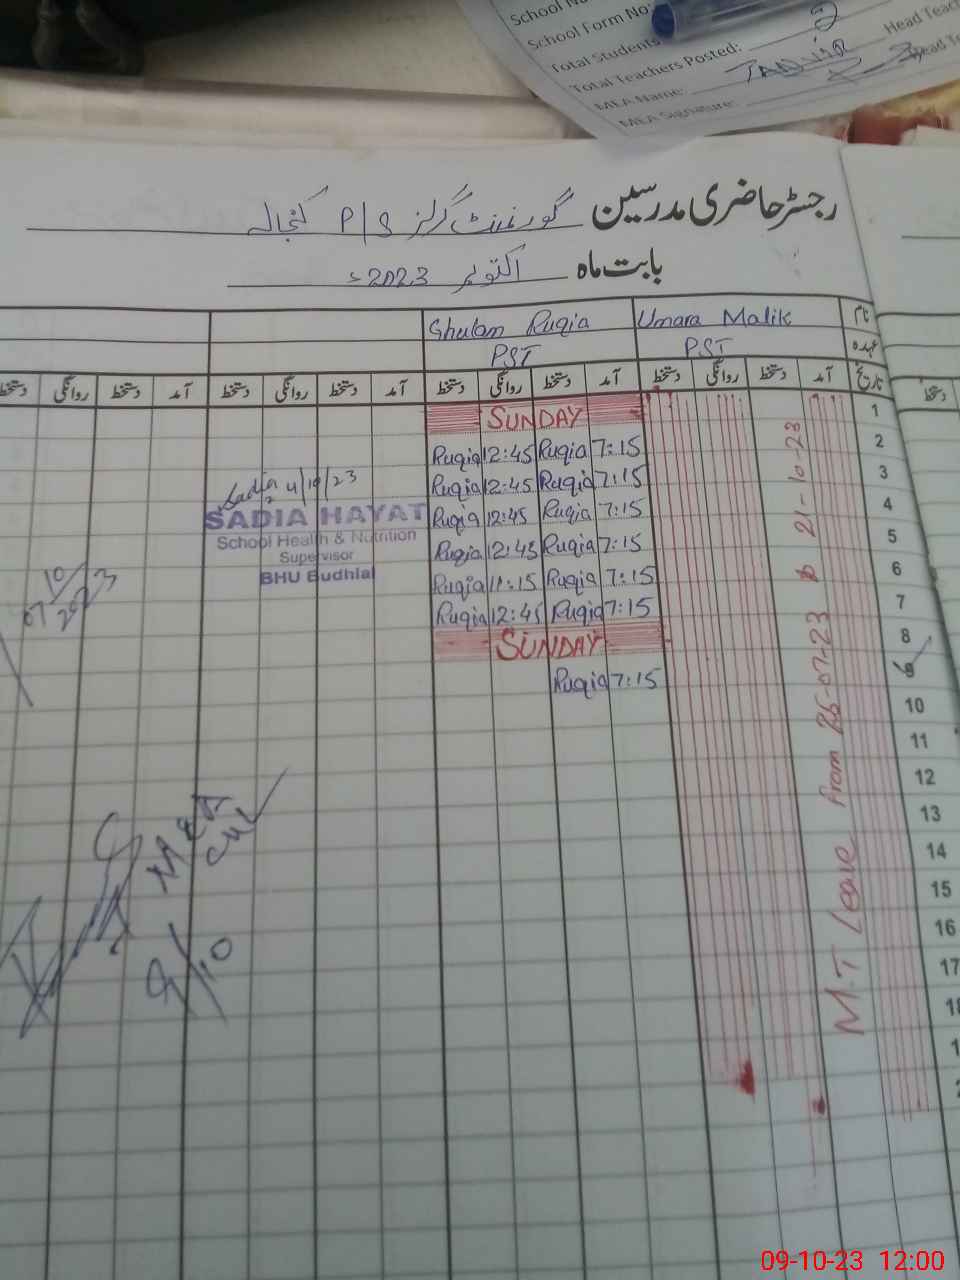 School Form No:
Total Students
Total Teachers Posted: 2 Head Teac
MEA Name: TANVIR
MEA Signature:
رجسٹر حاضری مدرسین گورنمنٹ گرلز P/S
بابت ماہ اکتوبر 2023ء
نام Umara Malik Ghulam Ruqia
عہدہ PST PST
تاریخ آمد دستخط روانگی دستخط آمد دستخط روانگی دستخط آمد دستخط روانگی دستخط آمد دستخط روانگی دستخط
1 SUNDAY
2 7:15 Ruqia 12:45 Ruqia
3 7:15 Ruqia 12:45 Ruqia
4 7:15 Ruqia 12:45 Ruqia
5 7:15 Ruqia 12:45 Ruqia
6 7:15 Ruqia 11:15 Ruqia
7 7:15 Ruqia 12:45 Ruqia
8 SUNDAY
9 7:15 Ruqia
10
11
12
13
14
15
16
17
M.T Leave from 26-07-23 to 21-10-23
Sadia 4/10/23
SADIA HAYAT
School Health & Nutrition
Supervisor
BHU Budhial
07/10/2023
MEA
9/10
09-10-23 12:00